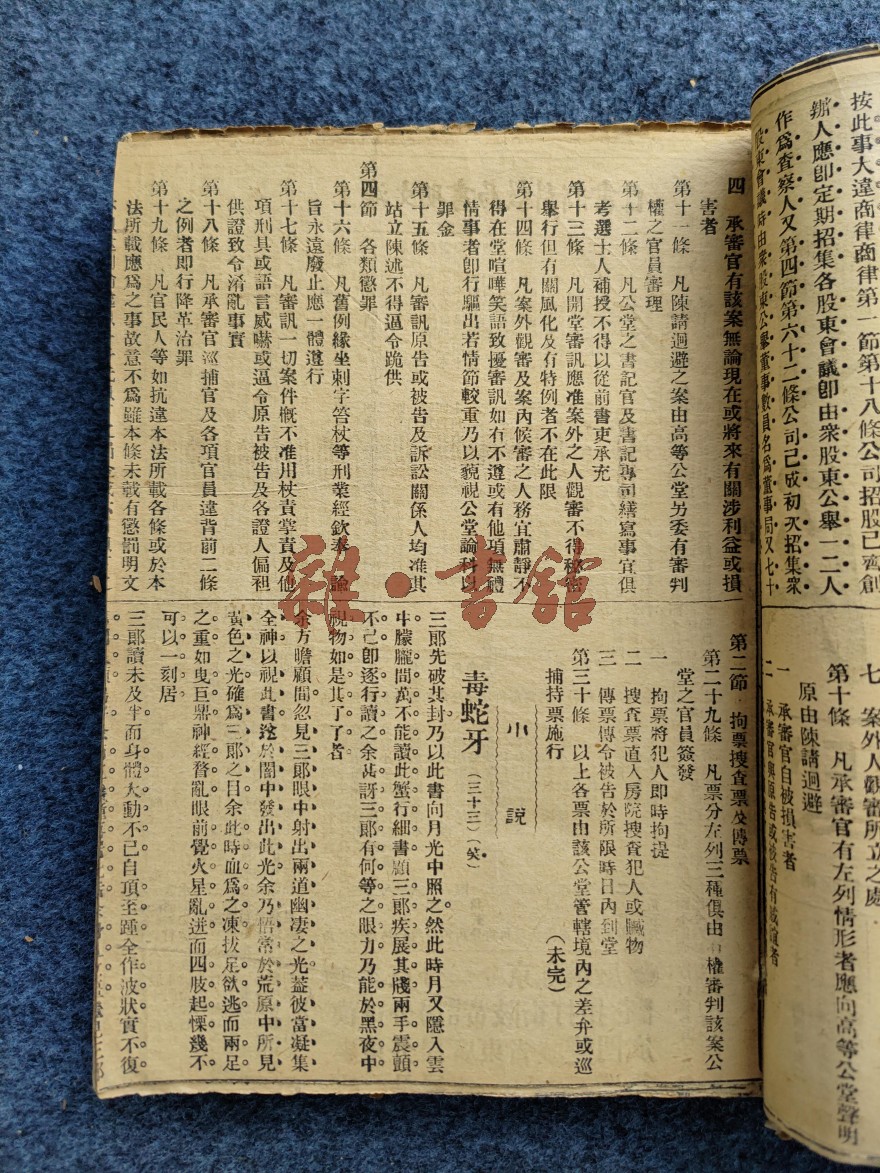 按此事大違商律商律第一節第十八條公司招股已齊創
辦人應卽定期招集各股東會議卽由衆股東公舉一二人
作爲查察人又第四節第六十二條公司已成初次招集衆
股東會議時由衆股東公舉董事數員名爲董事局又七十
七 案外人觀審所立之處
第十條 凡承審官有左列情形者應向高等公堂聲明
原由陳請迴避
一 承審官自被損害者
二 承審官與原告或被告有戚誼者
四 承審官有該案無論現在或將來有關涉利益或損
害者
第十一條 凡陳請迴避之案由高等公堂另委有審判
權之官員審理
第十二條 凡公堂之書記官及書記專司繕寫事宜俱
考選士人補授不得以從前書吏承充
第十三條 凡開堂審訊應准案外之人觀審不得秘密
舉行但有關風化及有特例者不在此限
第十四條 凡案外觀審及案內候審之人務宜肅靜不
得在堂喧嘩笑語致擾審訊如有不遵或有他項無禮
情事者卽行驅出若情節較重乃以藐視公堂論科以
罪金
第十五條 凡審訊原告或被告及訴訟關係人均准其
站立陳述不得逼令跪供
第四節 各類懲罪
第十六條 凡舊例緣坐刺字笞杖等刑業經欽奉 諭
旨永遠廢止應一體遵行
第十七條 凡審訊一切案件槪不准用杖責掌責及他
項刑具或語言威嚇或逼令原告被告及各證人偏袒
供證致令淆亂事實
第十八條 凡承審官巡捕官及各項官員違背前二條
之例者卽行降革治罪
第十九條 凡官民人等如抗違本法所載各條或於本
法所載應爲之事故意不爲雖本條未載有懲罰明文
第二節 拘票搜查票及傳票
第二十九條 凡票分左列三種俱由 權審判該案公
堂之官員簽發
一 拘票將犯人卽時拘提
二 搜查票直入房院搜查犯人或贓物
三 傳票傳令被告於所限時日內到堂
第三十條 以上各票由該公堂管轄境內之差弁或巡
捕持票施行 (未完)
小說
毒蛇牙 (三十三) (笑)
三郎先破其封乃以此書向月光中照之然此時月又隱入雲
中朦朧間萬不能讀此蟹行細書顧三郎疾展其牋兩手震顫
不已卽逐行讀之余甚訝三郎有何等之眼力乃能於黑夜中
視物如是其了了者
余方瞻顧間忽見三郎眼中射出兩道幽凄之光蓋彼當凝集
全神以視此書遂於闇中發出此光余乃悟常於荒原中所見
黃色之光確爲三郎之目余此時血爲之凍拔足欲逃而兩足
之重如曳巨鼎神經瞀亂眼前覺火星亂迸而四肢起慄幾不
可以一刻居
三郎讀未及半而身體大動不已自項至踵全作波狀實不復
雜·書館